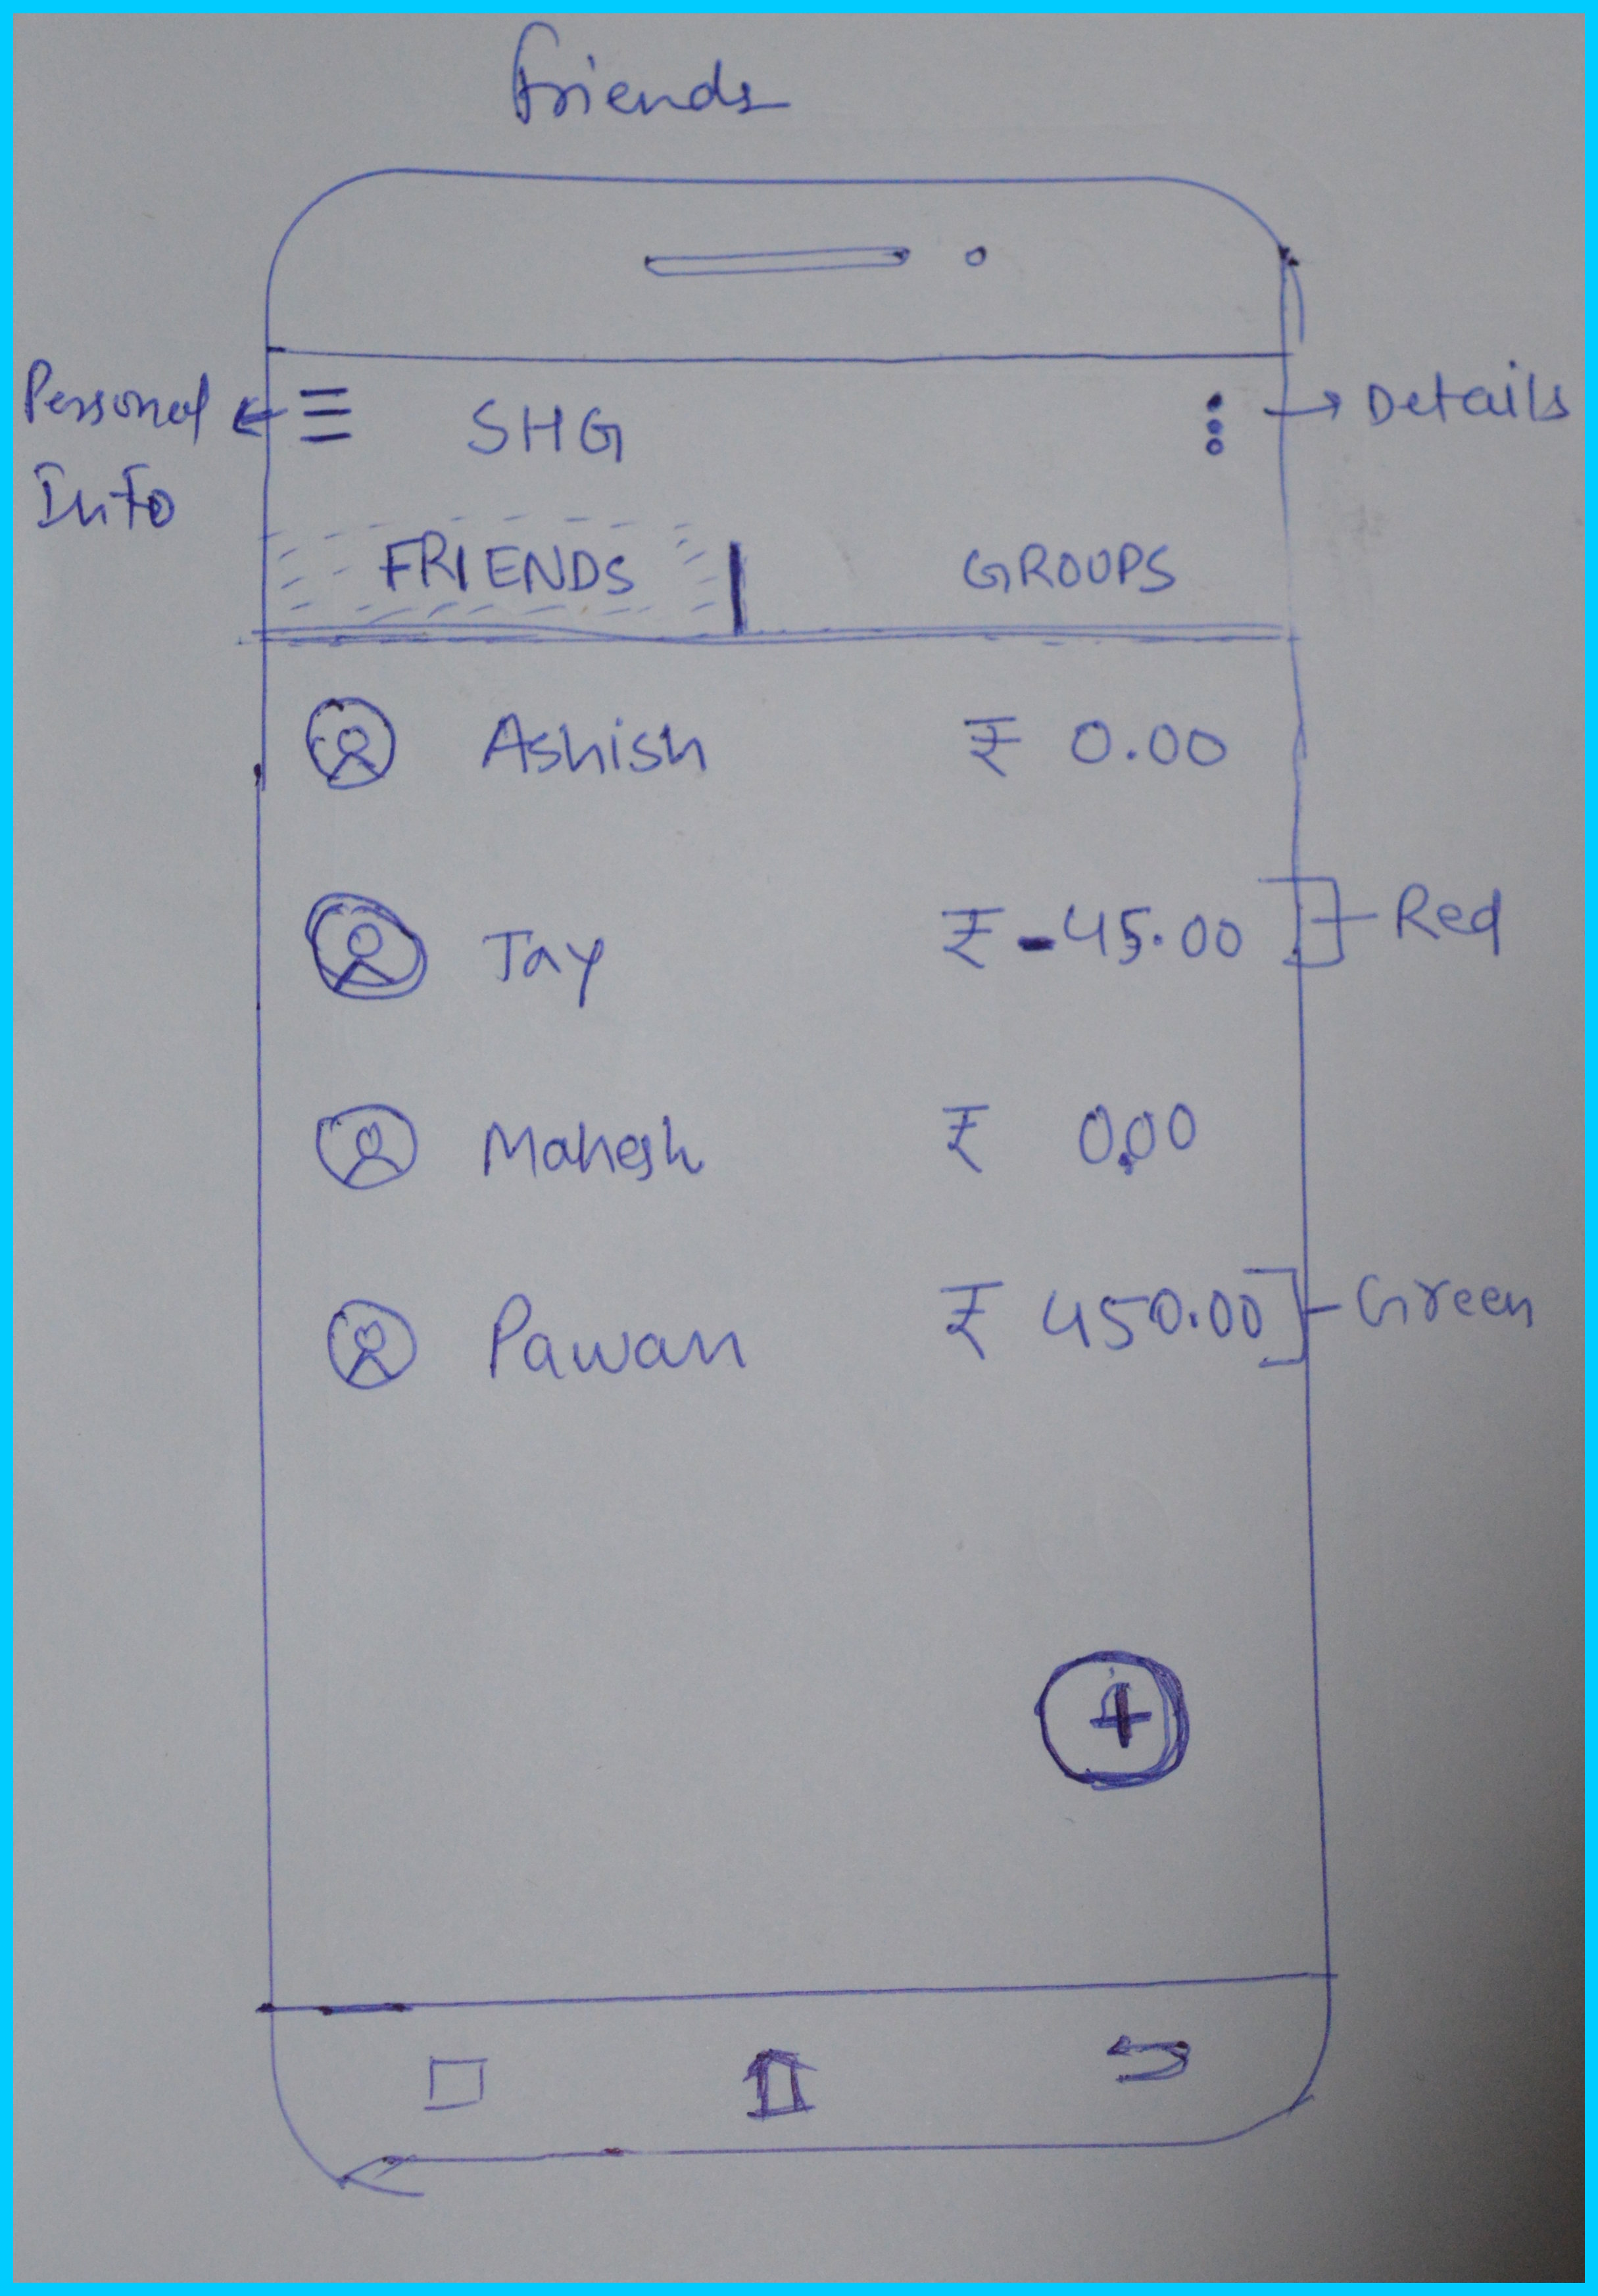 Friends
Personal Info
SHG
Details
FRIENDS | GROUPS
Ashish ₹ 0.00
Jay ₹ -45.00 Red
Mahesh ₹ 0.00
Pawan ₹ 450.00 Green
+